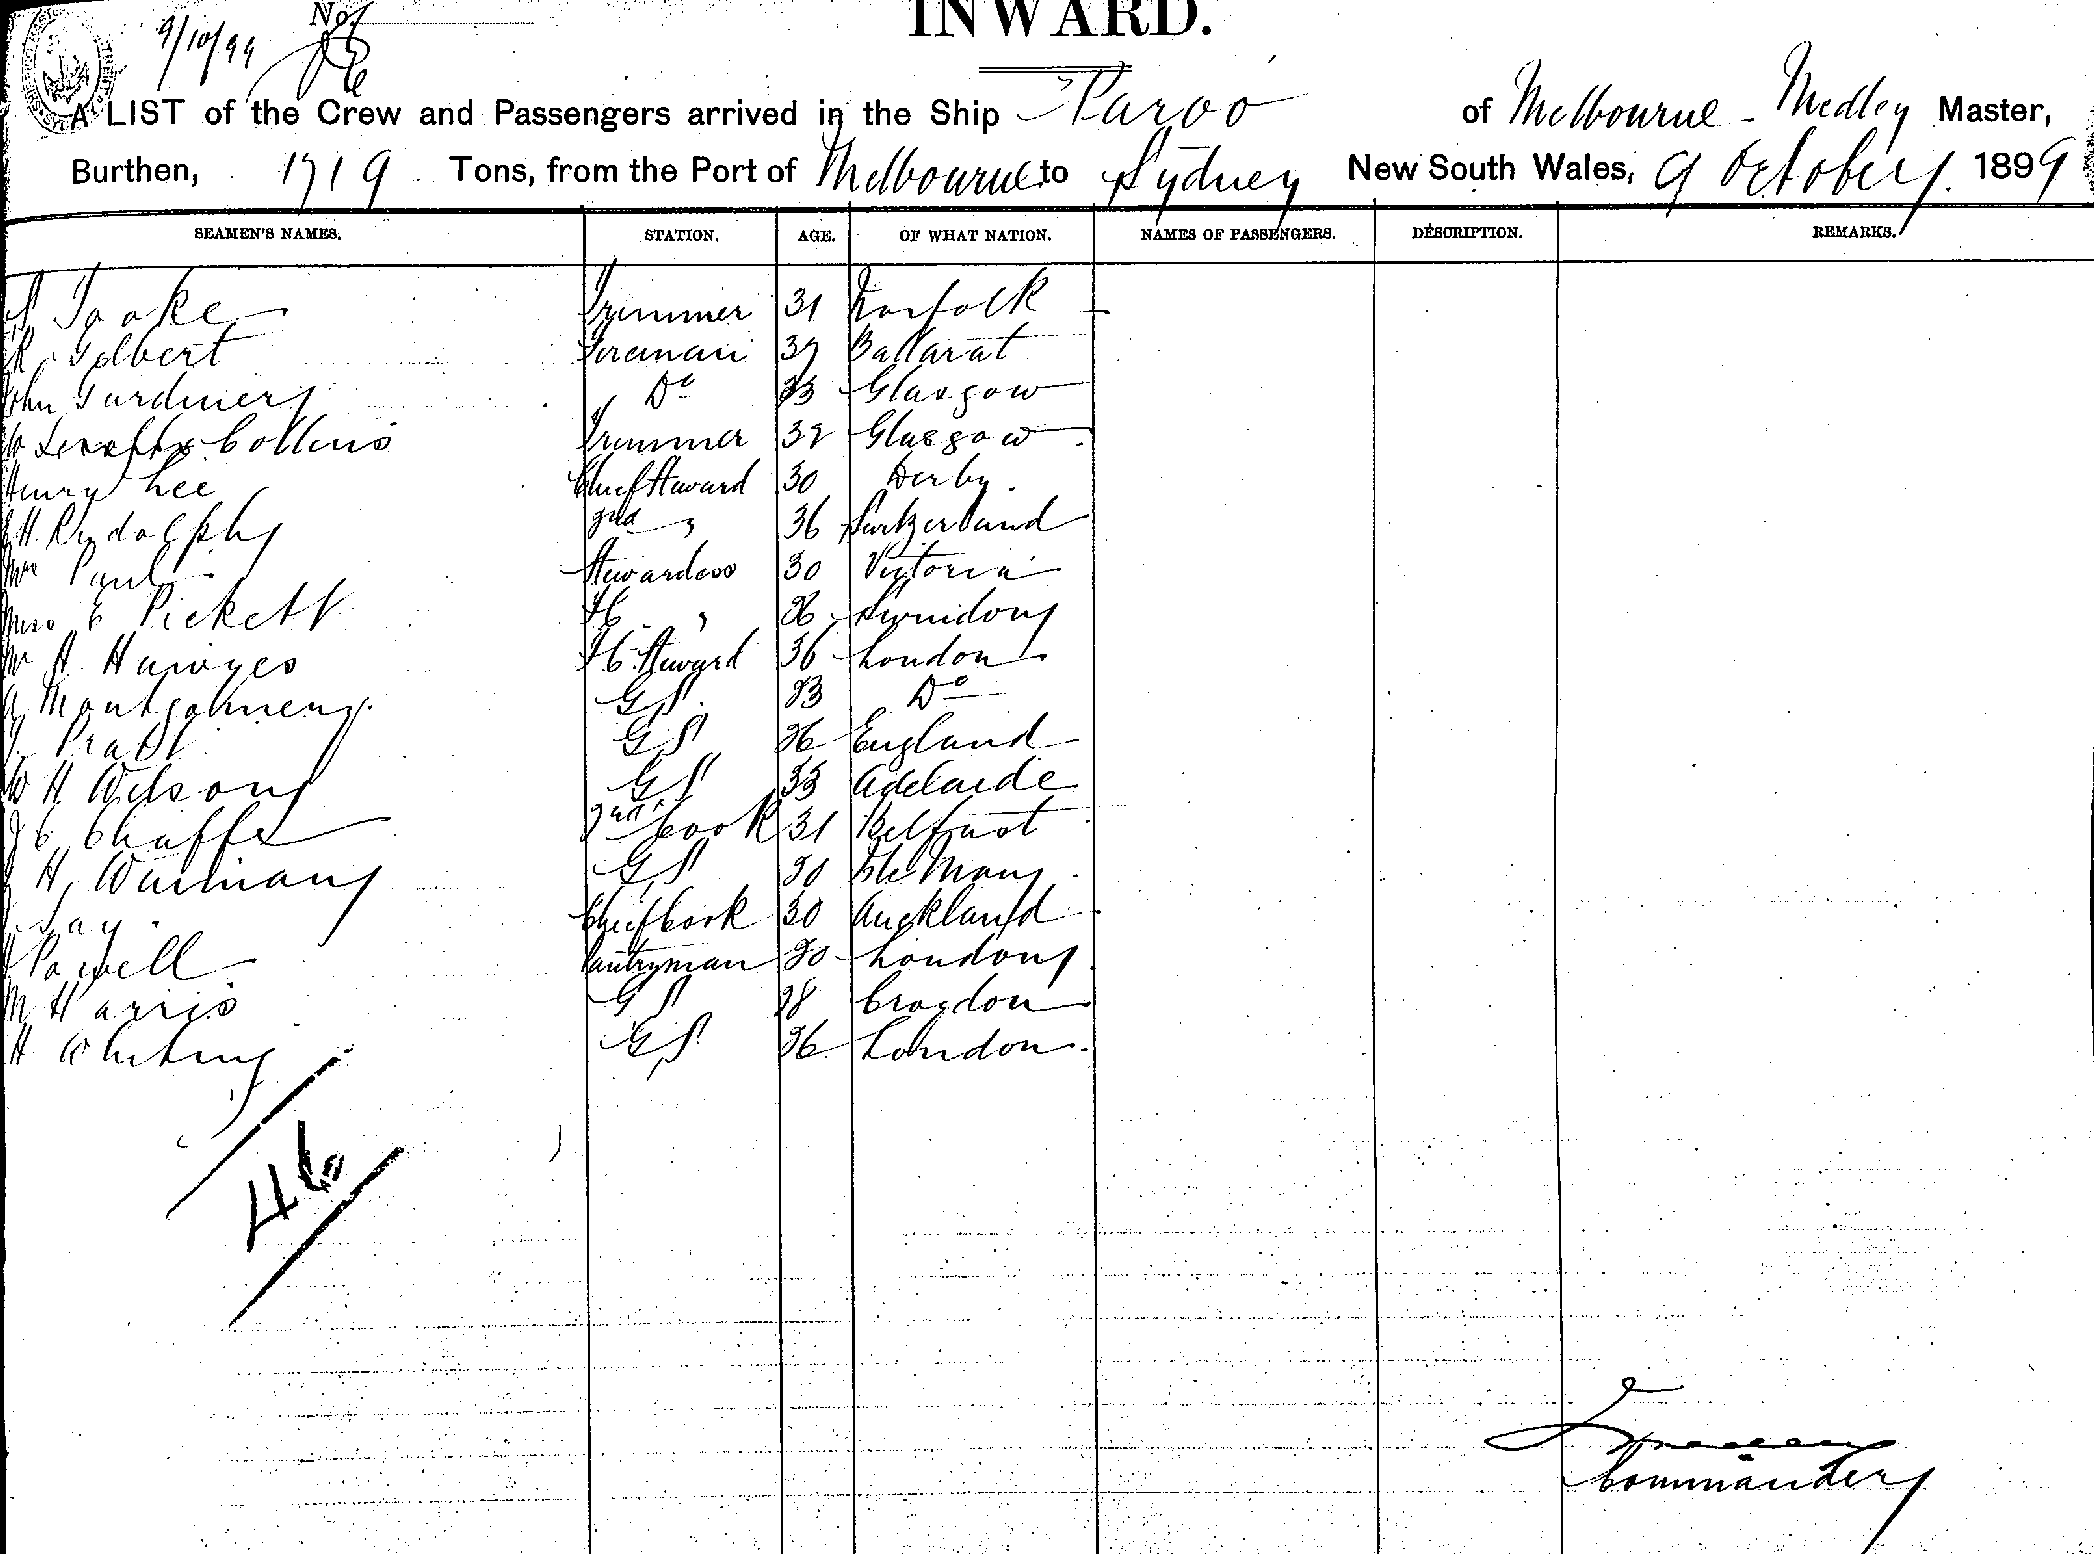 No.
9/10/99
INWARD.
A LIST of the Crew and Passengers arrived in the Ship Paroo of Melbourne - Medley Master,
Burthen, 1719 Tons, from the Port of Melbourne to Sydney New South Wales, 9 October 1899
SEAMEN'S NAMES. STATION. AGE. OF WHAT NATION. NAMES OF PASSENGERS. DESCRIPTION. REMARKS.
Tooke Trimmer 31 Norfolk
R Gilbert Foreman 37 Ballarat
John Gardiner Do 33 Glasgow
Collins Trimmer 32 Glasgow
Henry Lee Chief Steward 30 Derby
H. Rudolph 2nd " 36 Switzerland
Mrs Paul Stewardess 30 Victoria
Miss E Pickett FC " 26 Swindon
Mr A. Hawyes FC Steward 36 London
A Montgomery GS 23 Do
Pratt GS 26 England
W H Wilson GS 33 Adelaide
J C Chaffe 2nd Cook 31 Belfast
J H Warman GS 20 Isle Man
Lay Chief Cook 30 Auckland
Powell Pantryman 20 London
M Harris GS 28 Croydon
H Whiting GS 26 London
46
Commander